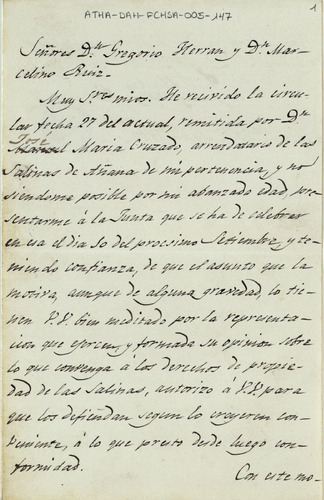 ATHA-DAH-FCHSA-005-147
1
Señores Dn. Gregorio Herran y Dn. Mar-
celino Ruiz.
Muy Sres. mios. He recivido la circu-
lar fecha 27 del actual, remitida por Dn.
José
Manuel Maria Cruzado, arrendatario de las
Salinas de Añana de mi pertenencia, y no
siendome posible por mi abanzada edad, pre-
sentarme á la Junta que se ha de celebrar
en esa el dia 30 del procsimo Setiembre, y te-
niendo confianza, de que el asunto que la
motiva, aunque de alguna gravedad, lo tie-
nen V.V. bien meditado por la representa-
cion que ejercen, y formada su opinion sobre
lo que convenga á los derechos de propie-
dad de las Salinas, autorizo á V.V. para
que los defiendan segun lo creyeren con-
veniente, á lo que presto desde luego con-
formidad.
Con este mo-